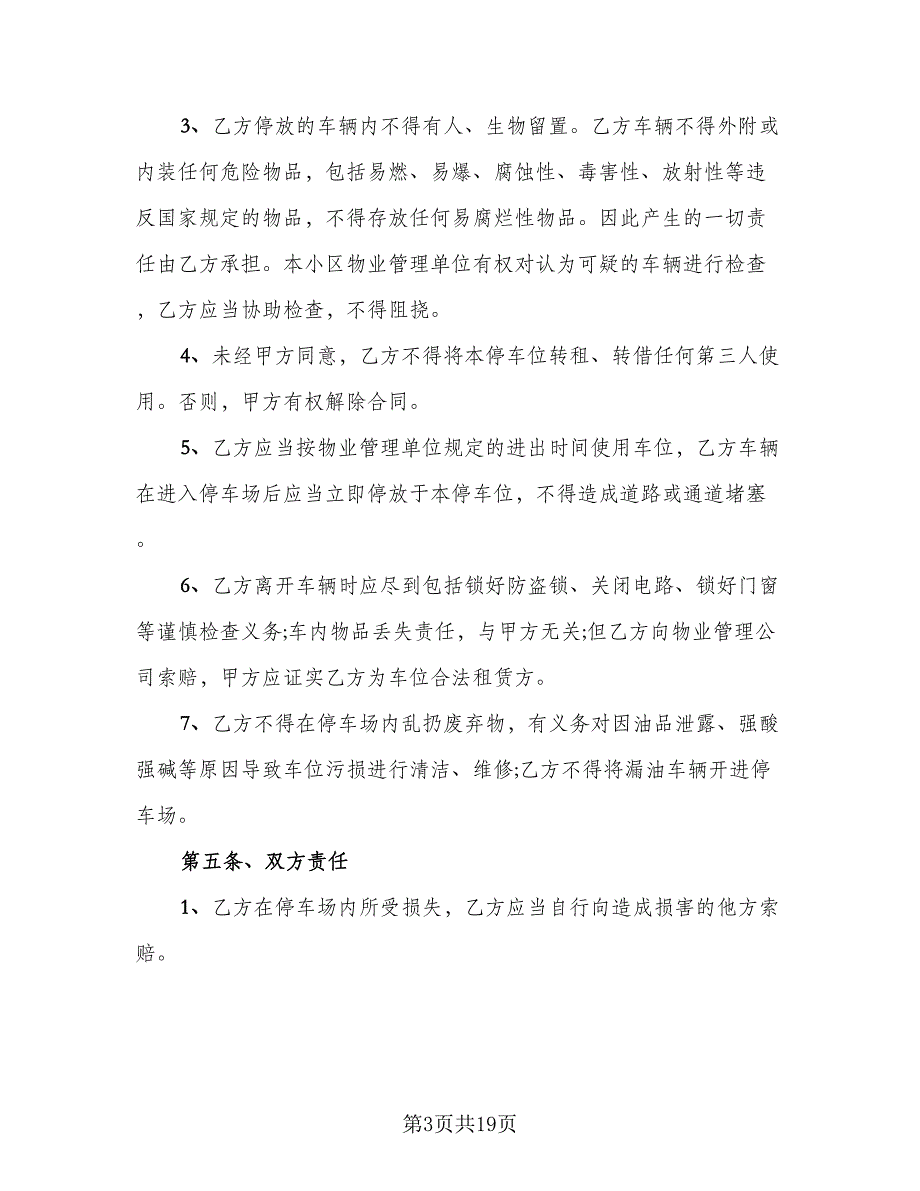 3、乙方停放的车辆内不得有人、生物留置。乙方车辆不得外附或
内装任何危险物品，包括易燃、易爆、腐蚀性、毒害性、放射性等违
反国家规定的物品，不得存放任何易腐烂性物品。因此产生的一切责
任由乙方承担。本小区物业管理单位有权对认为可疑的车辆进行检查
，乙方应当协助检查，不得阻挠。
4、未经甲方同意，乙方不得将本停车位转租、转借任何第三人使
用。否则，甲方有权解除合同。
5、乙方应当按物业管理单位规定的进出时间使用车位，乙方车辆
在进入停车场后应当立即停放于本停车位，不得造成道路或通道堵塞
。
6、乙方离开车辆时应尽到包括锁好防盗锁、关闭电路、锁好门窗
等谨慎检查义务;车内物品丢失责任，与甲方无关;但乙方向物业管理公
司索赔，甲方应证实乙方为车位合法租赁方。
7、乙方不得在停车场内乱扔废弃物，有义务对因油品泄露、强酸
强碱等原因导致车位污损进行清洁、维修;乙方不得将漏油车辆开进停
车场。
第五条、双方责任
1、乙方在停车场内所受损失，乙方应当自行向造成损害的他方索
赔。
第3页共19页